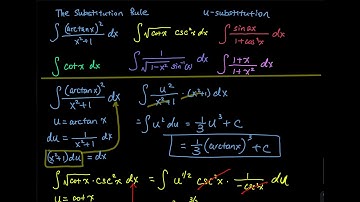 The Substitution Rule u-substitution
∫ (arctanx)²/(x²+1) dx ∫ √cotx csc²x dx ∫ sin2x/(1+cos²x) dx
∫ cotx dx ∫ 1/(√(1-x²) sin⁻¹(x)) dx ∫ (1+x)/(1+x²) dx
∫ (arctanx)²/(x²+1) dx ∫ u²/(x²+1) · (x²+1) du
u = arctanx = ∫ u² du = 1/3 u³ + C
du = 1/(x²+1) dx
(x²+1) du = dx = 1/3 (arctanx)³ + C
∫ √cotx · csc²x dx = ∫ u^(1/2) csc²x · 1/(-csc²x) du
u = cotx